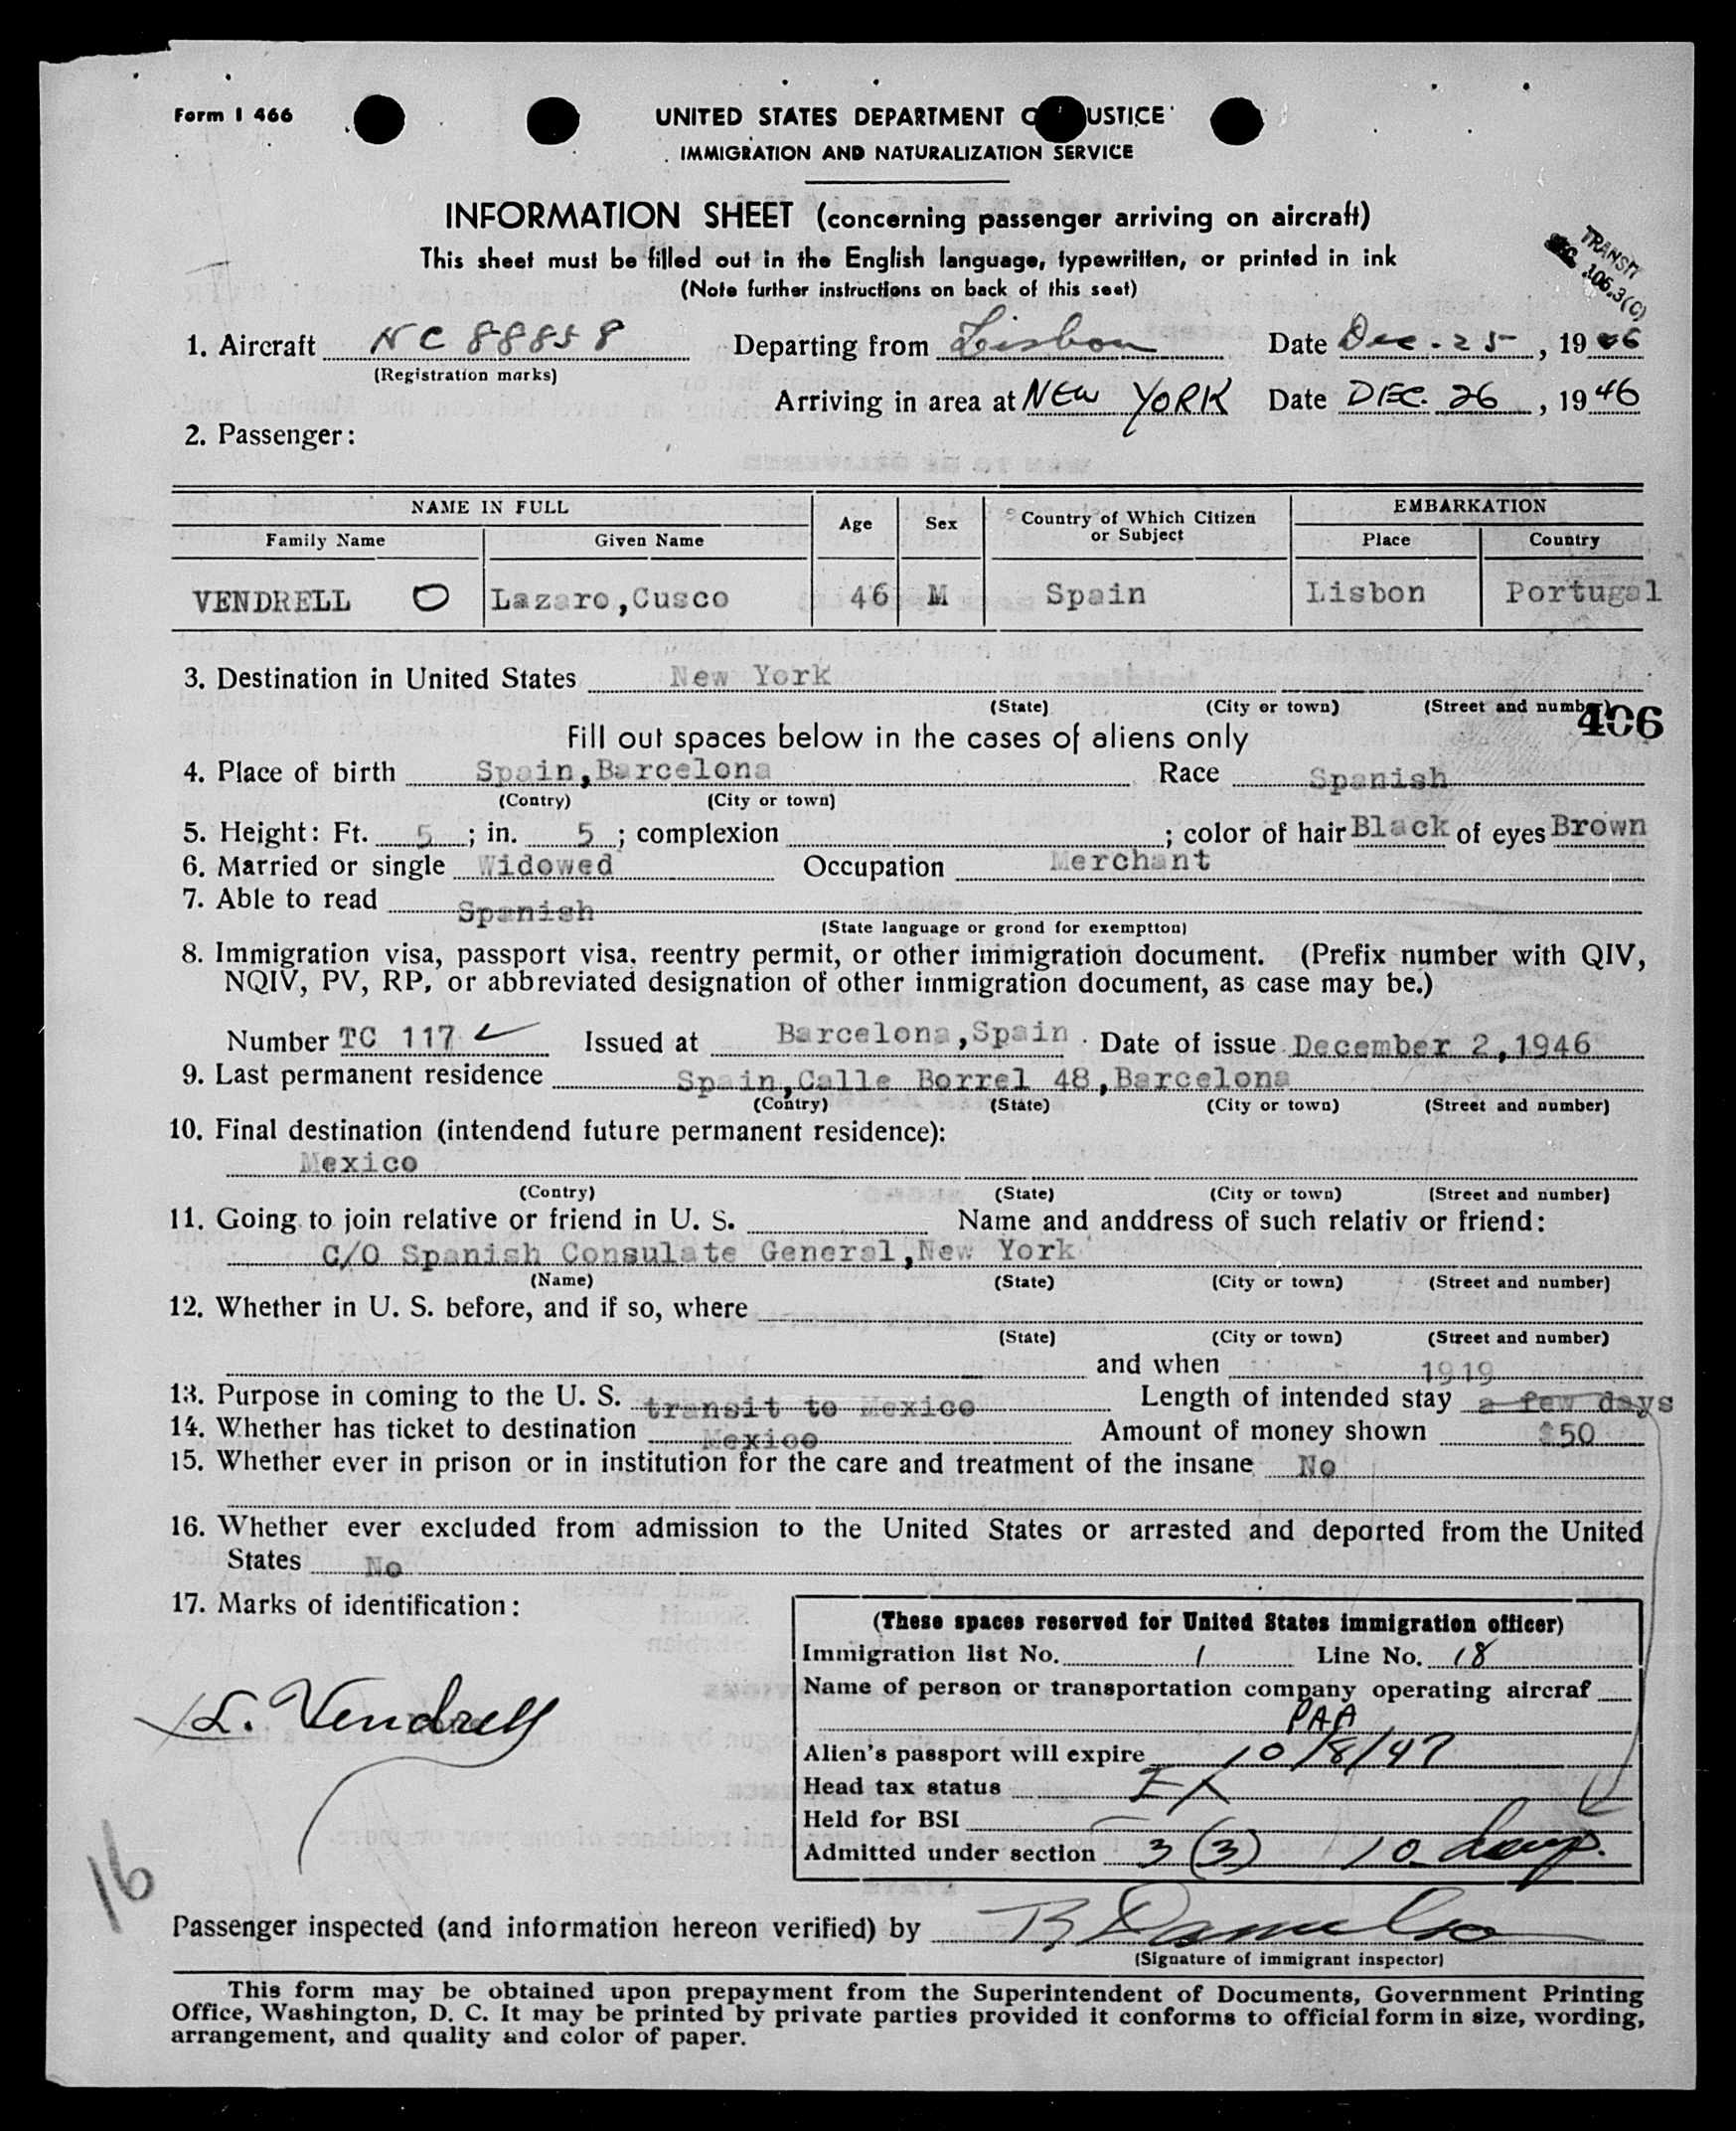 Form I 466
UNITED STATES DEPARTMENT O USTICE
IMMIGRATION AND NATURALIZATION SERVICE
INFORMATION SHEET (concerning passenger arriving on aircraft)
This sheet must be filled out in the English language, typewritten, or printed in ink
(Note further instructions on back of this seet)
TRANSIT
SEC. 106.3(C)
1. Aircraft NC 88858 Departing from Lisbon Date Dec. 25, 1946
(Registration marks)
Arriving in area at NEW YORK Date DEC. 26, 1946
2. Passenger:
NAME IN FULL Age Sex Country of Which Citizen or Subject EMBARKATION
Family Name Given Name Place Country
VENDRELL O Lazaro,Cusco 46 M Spain Lisbon Portugal
3. Destination in United States New York
(State) (City or town) (Street and number)
406
Fill out spaces below in the cases of aliens only
4. Place of birth Spain,Barcelona Race Spanish
(Contry) (City or town)
5. Height: Ft. 5; in. 5; complexion ; color of hair Black of eyes Brown
6. Married or single Widowed Occupation Merchant
7. Able to read Spanish
(State language or grond for exemptton)
8. Immigration visa, passport visa, reentry permit, or other immigration document. (Prefix number with QIV,
NQIV, PV, RP, or abbreviated designation of other immigration document, as case may be.)
Number TC 117 Issued at Barcelona,Spain Date of issue December 2,1946
9. Last permanent residence Spain,Calle Borrel 48,Barcelona
(Contry) (State) (City or town) (Street and number)
10. Final destination (intendend future permanent residence):
Mexico
(Contry) (State) (City or town) (Street and number)
11. Going to join relative or friend in U. S. Name and anddress of such relativ or friend:
C/O Spanish Consulate General,New York
(Name) (State) (City or town) (Street and number)
12. Whether in U. S. before, and if so, where
(State) (City or town) (Street and number)
and when 1919
13. Purpose in coming to the U. S. transit to Mexico Length of intended stay a few days
14. Whether has ticket to destination Mexico Amount of money shown $50
15. Whether ever in prison or in institution for the care and treatment of the insane No
16. Whether ever excluded from admission to the United States or arrested and deported from the United
States No
17. Marks of identification:
L. Vendrell
(These spaces reserved for United States immigration officer)
Immigration list No. 1 Line No. 18
Name of person or transportation company operating aircraf
PAA
Alien's passport will expire 10/8/47
Head tax status EX
Held for BSI
Admitted under section 3 (3) 10 days.
16
Passenger inspected (and information hereon verified) by
(Signature of immigrant inspector)
This form may be obtained upon prepayment from the Superintendent of Documents, Government Printing
Office, Washington, D. C. It may be printed by private parties provided it conforms to official form in size, wording,
arrangement, and quality and color of paper.